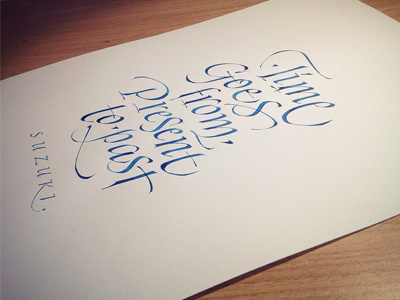 Time
Goes
from,
present
to,past
SUZUKI.